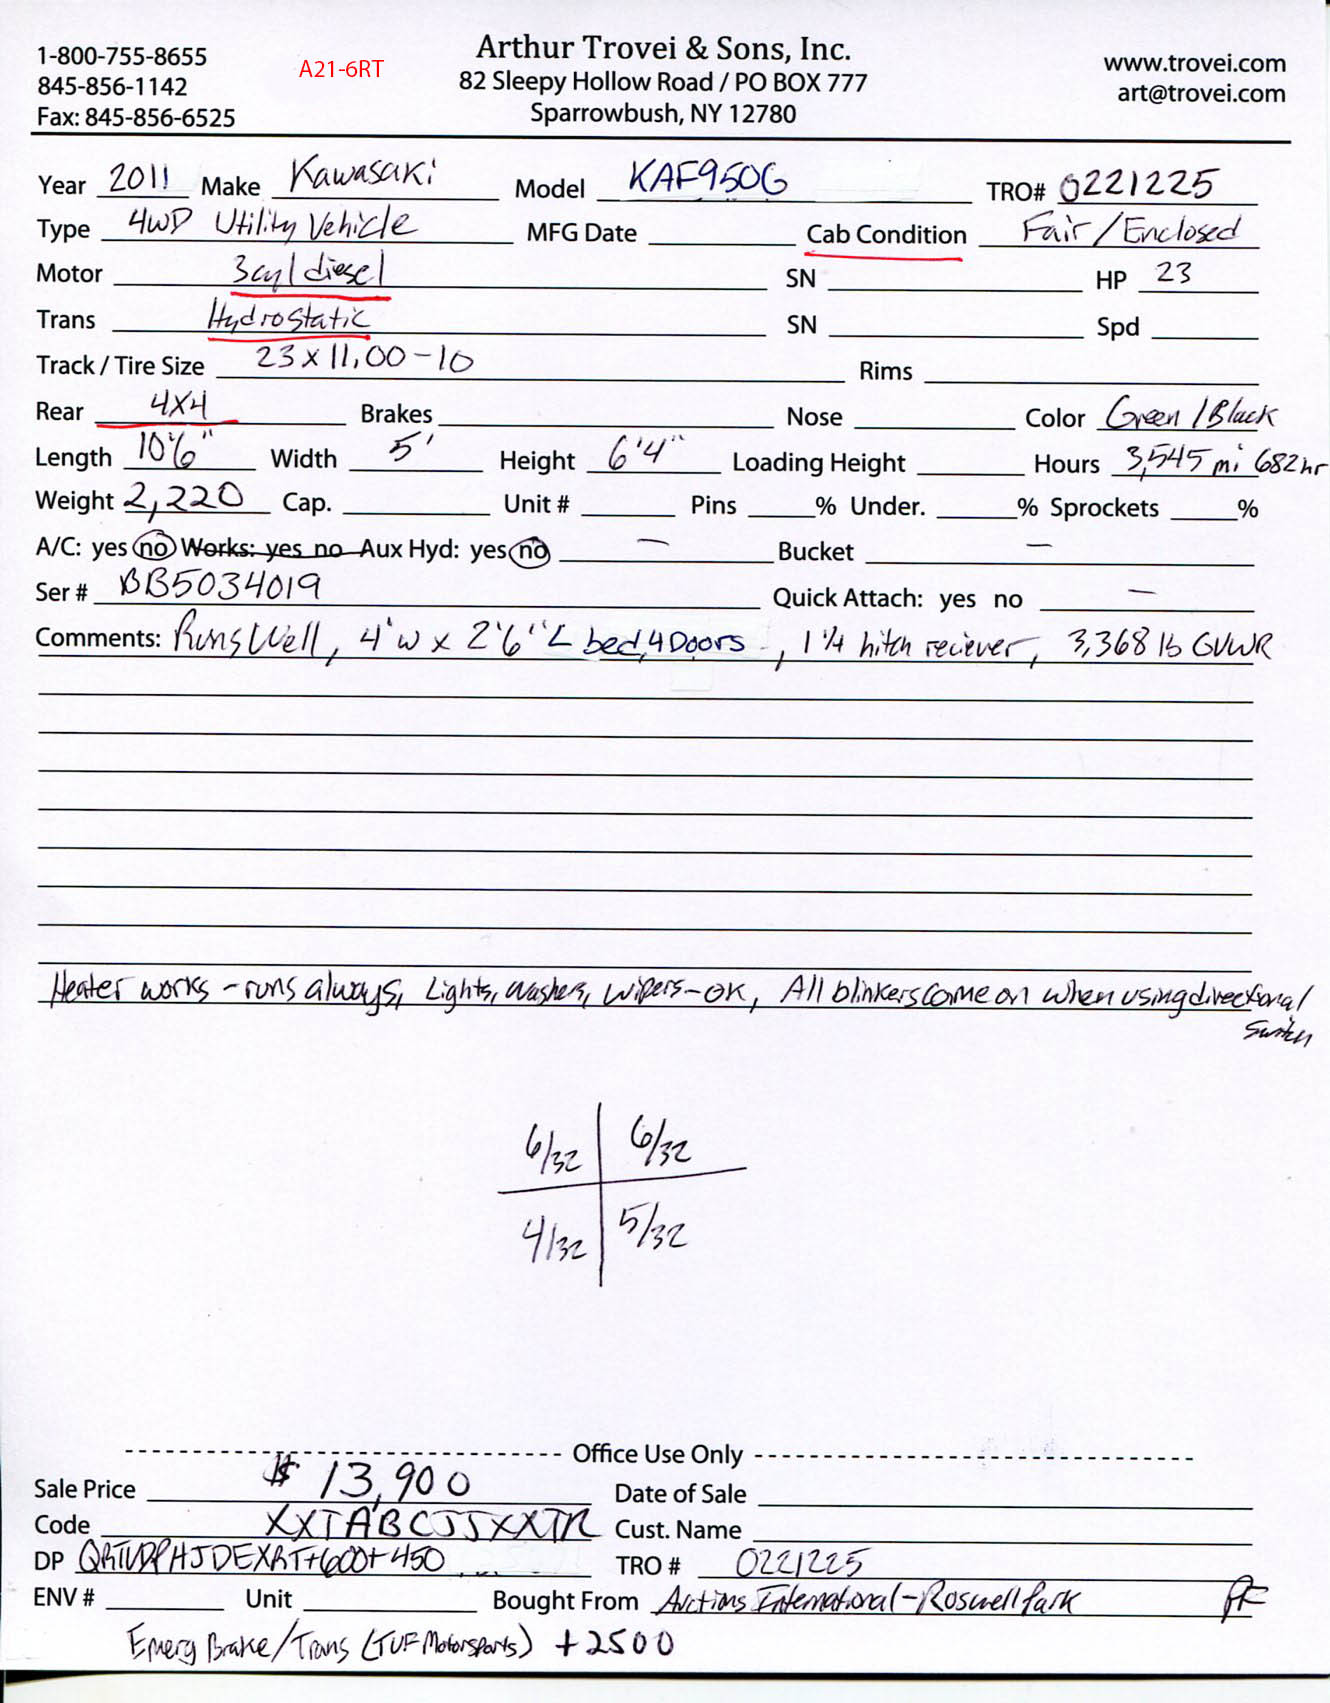 1-800-755-8655
845-856-1142
Fax: 845-856-6525
A21-6RT
Arthur Trovei & Sons, Inc.
82 Sleepy Hollow Road / PO BOX 777
Sparrowbush, NY 12780
www.trovei.com
art@trovei.com
Year 2011 Make Kawasaki Model KAF950G TRO# 0221225
Type 4WD Utility Vehicle MFG Date Cab Condition Fair / Enclosed
Motor 3cyl diesel SN HP 23
Trans Hydrostatic SN Spd
Track / Tire Size 23 x 11.00-10 Rims
Rear 4X4 Brakes Nose Color Green / Black
Length 10'6" Width 5' Height 6'4" Loading Height Hours 3,545 mi 682 hr
Weight 2,220 Cap. Unit # Pins % Under. % Sprockets %
A/C: yes no Works: yes no Aux Hyd: yes no — Bucket —
Ser # BB5034019 Quick Attach: yes no —
Comments: Runs Well, 4'w x 2'6" L bed, 4 Doors, 1 1/4 hitch reciever, 3,368 lb GVWR
Heater works - runs always, Lights, washers, wipers - OK, All blinkers come on when using directional
switch
6/32 6/32
4/32 5/32
Office Use Only
Sale Price $ 13,900 Date of Sale
Code XXTABCJJXXTR Cust. Name
DP +600+450 TRO # 0221225
ENV # Unit Bought From Auctions International - Roswell Park
Emerg Brake/Trans (TUF Motorsports) +2500